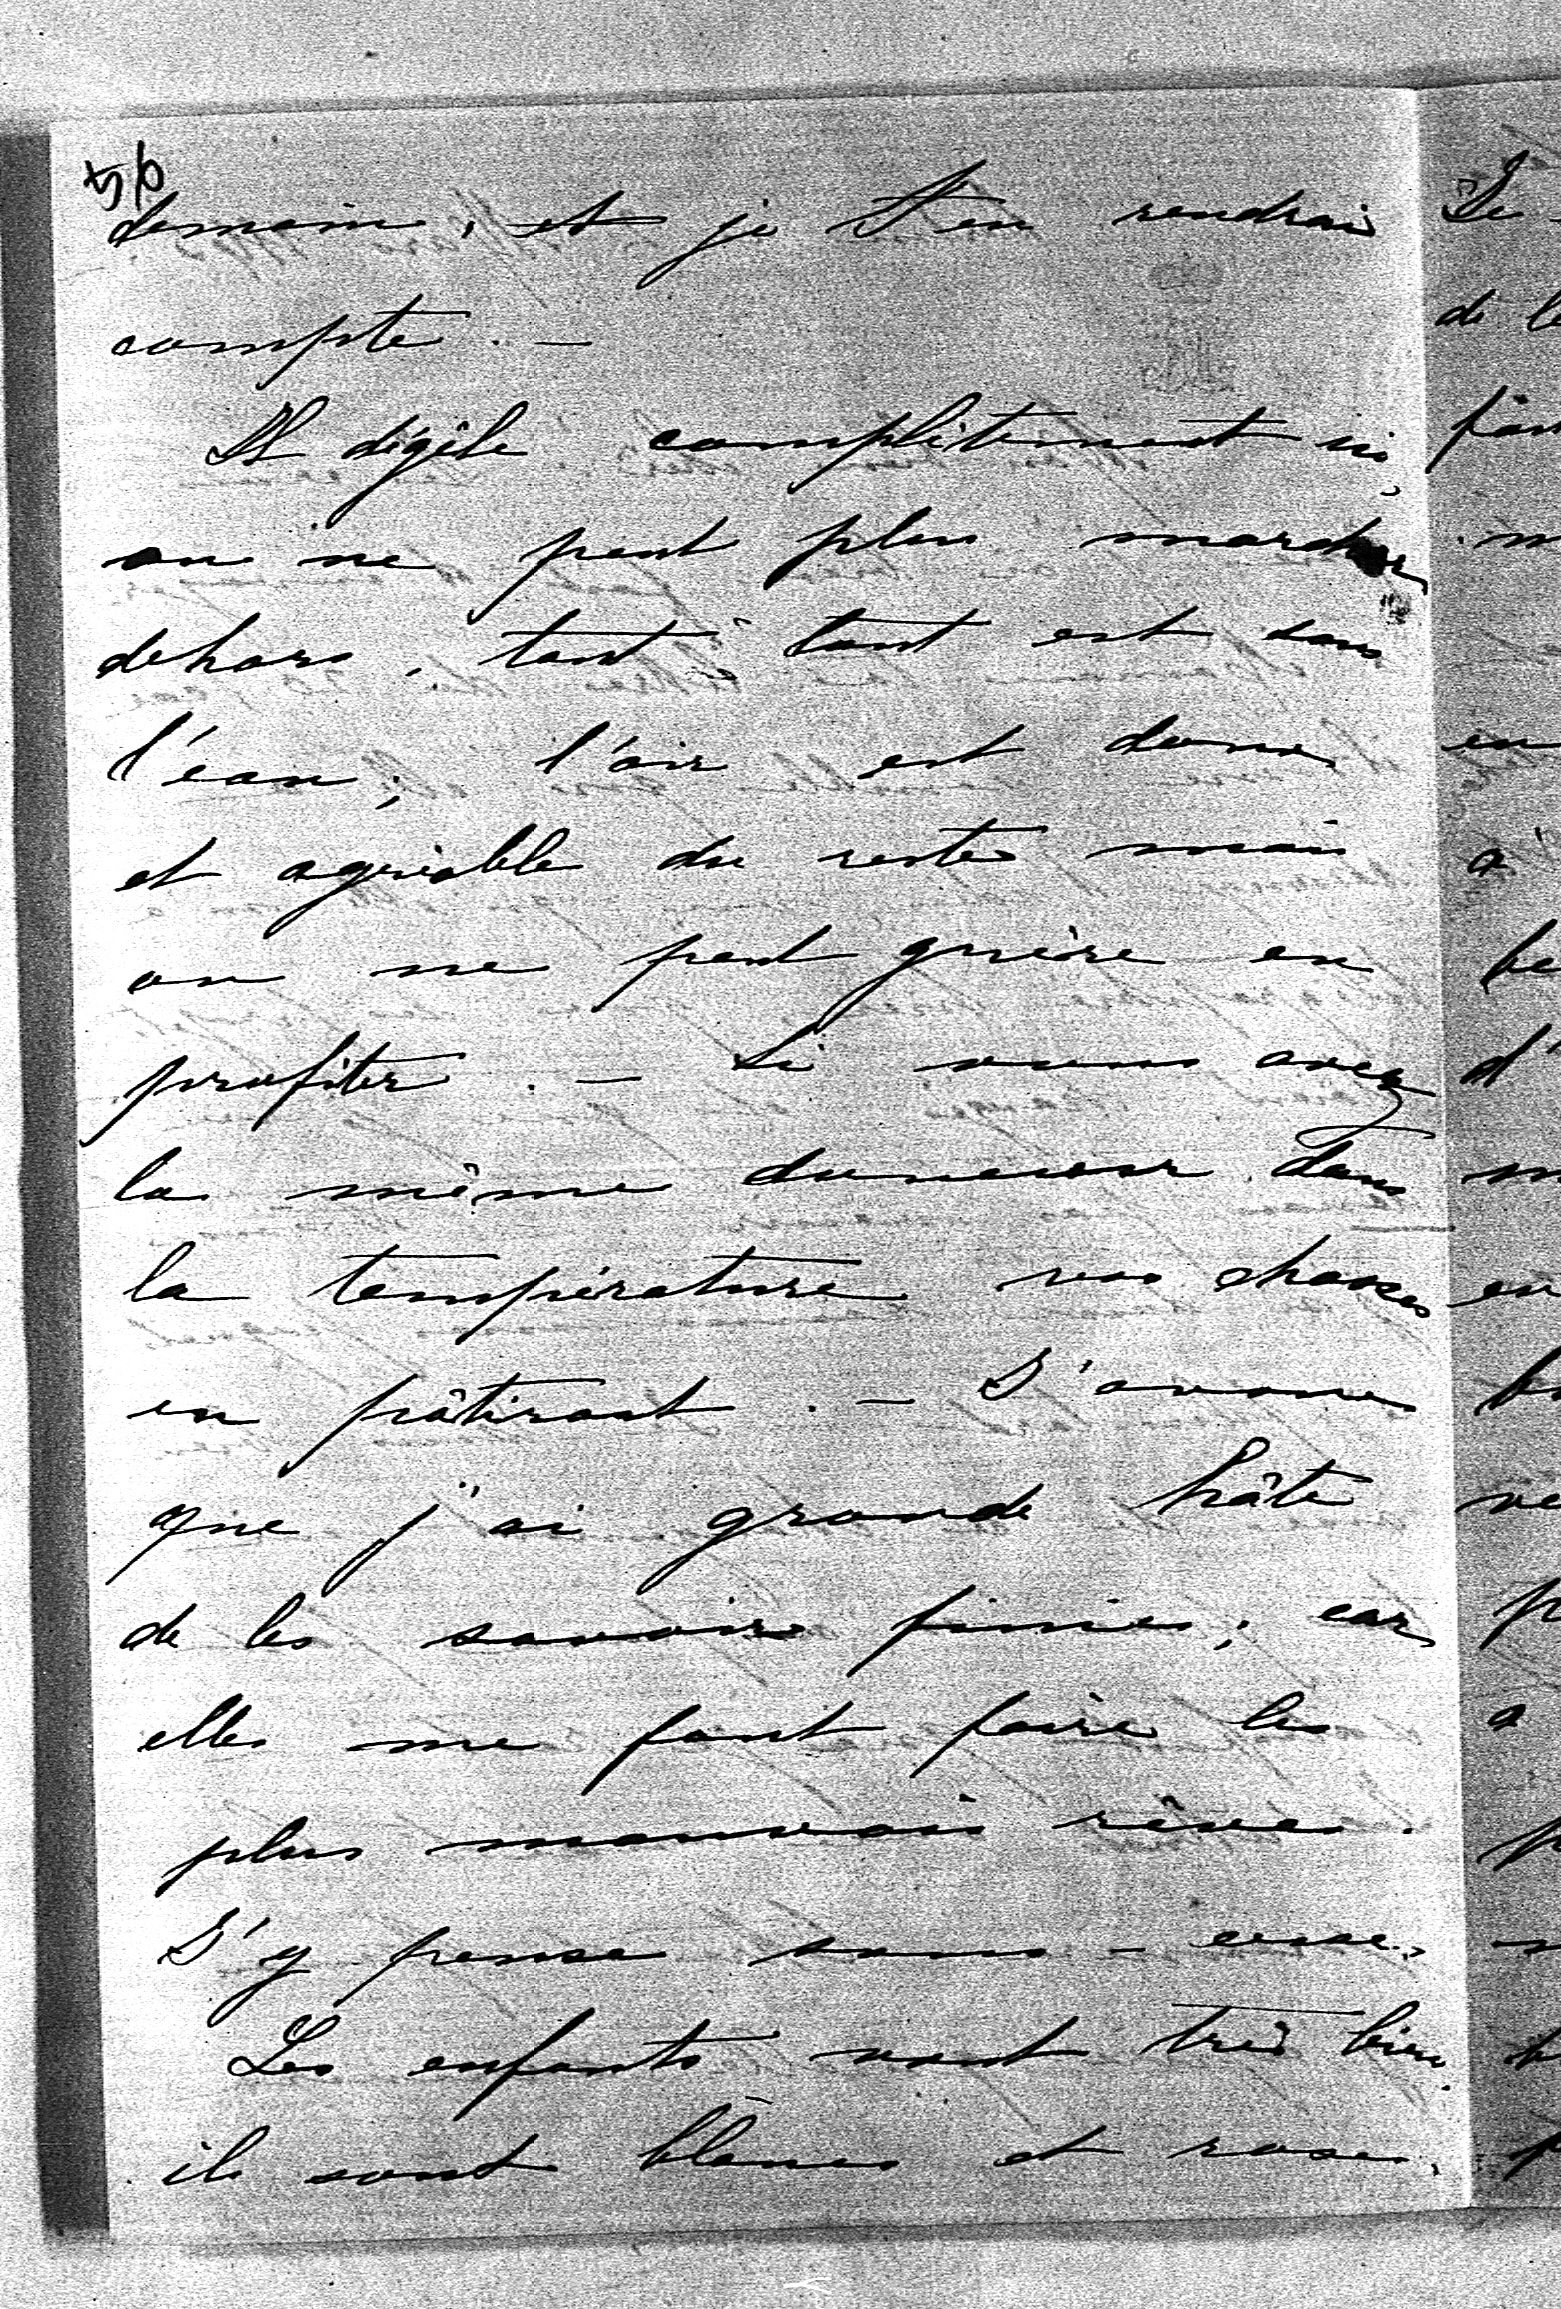 56
demain, et je t'en rendrai
compte. —
Il dégèle complètement ici,
on ne peut plus marcher
dehors, tant tout est dans
l'eau; l'air est doux
et agréable du reste mais
on ne peut guère en
profiter. — Si vous avez
la même douceur dans
la température vos chasses
en pâtiront. — J'avoue
que j'ai grande hâte
de les savoir finies; car
elles me font faire les
plus mauvais rêves.
J'y pense sans-cesse.
Les enfants vont très bien.
ils sont blancs et roses,